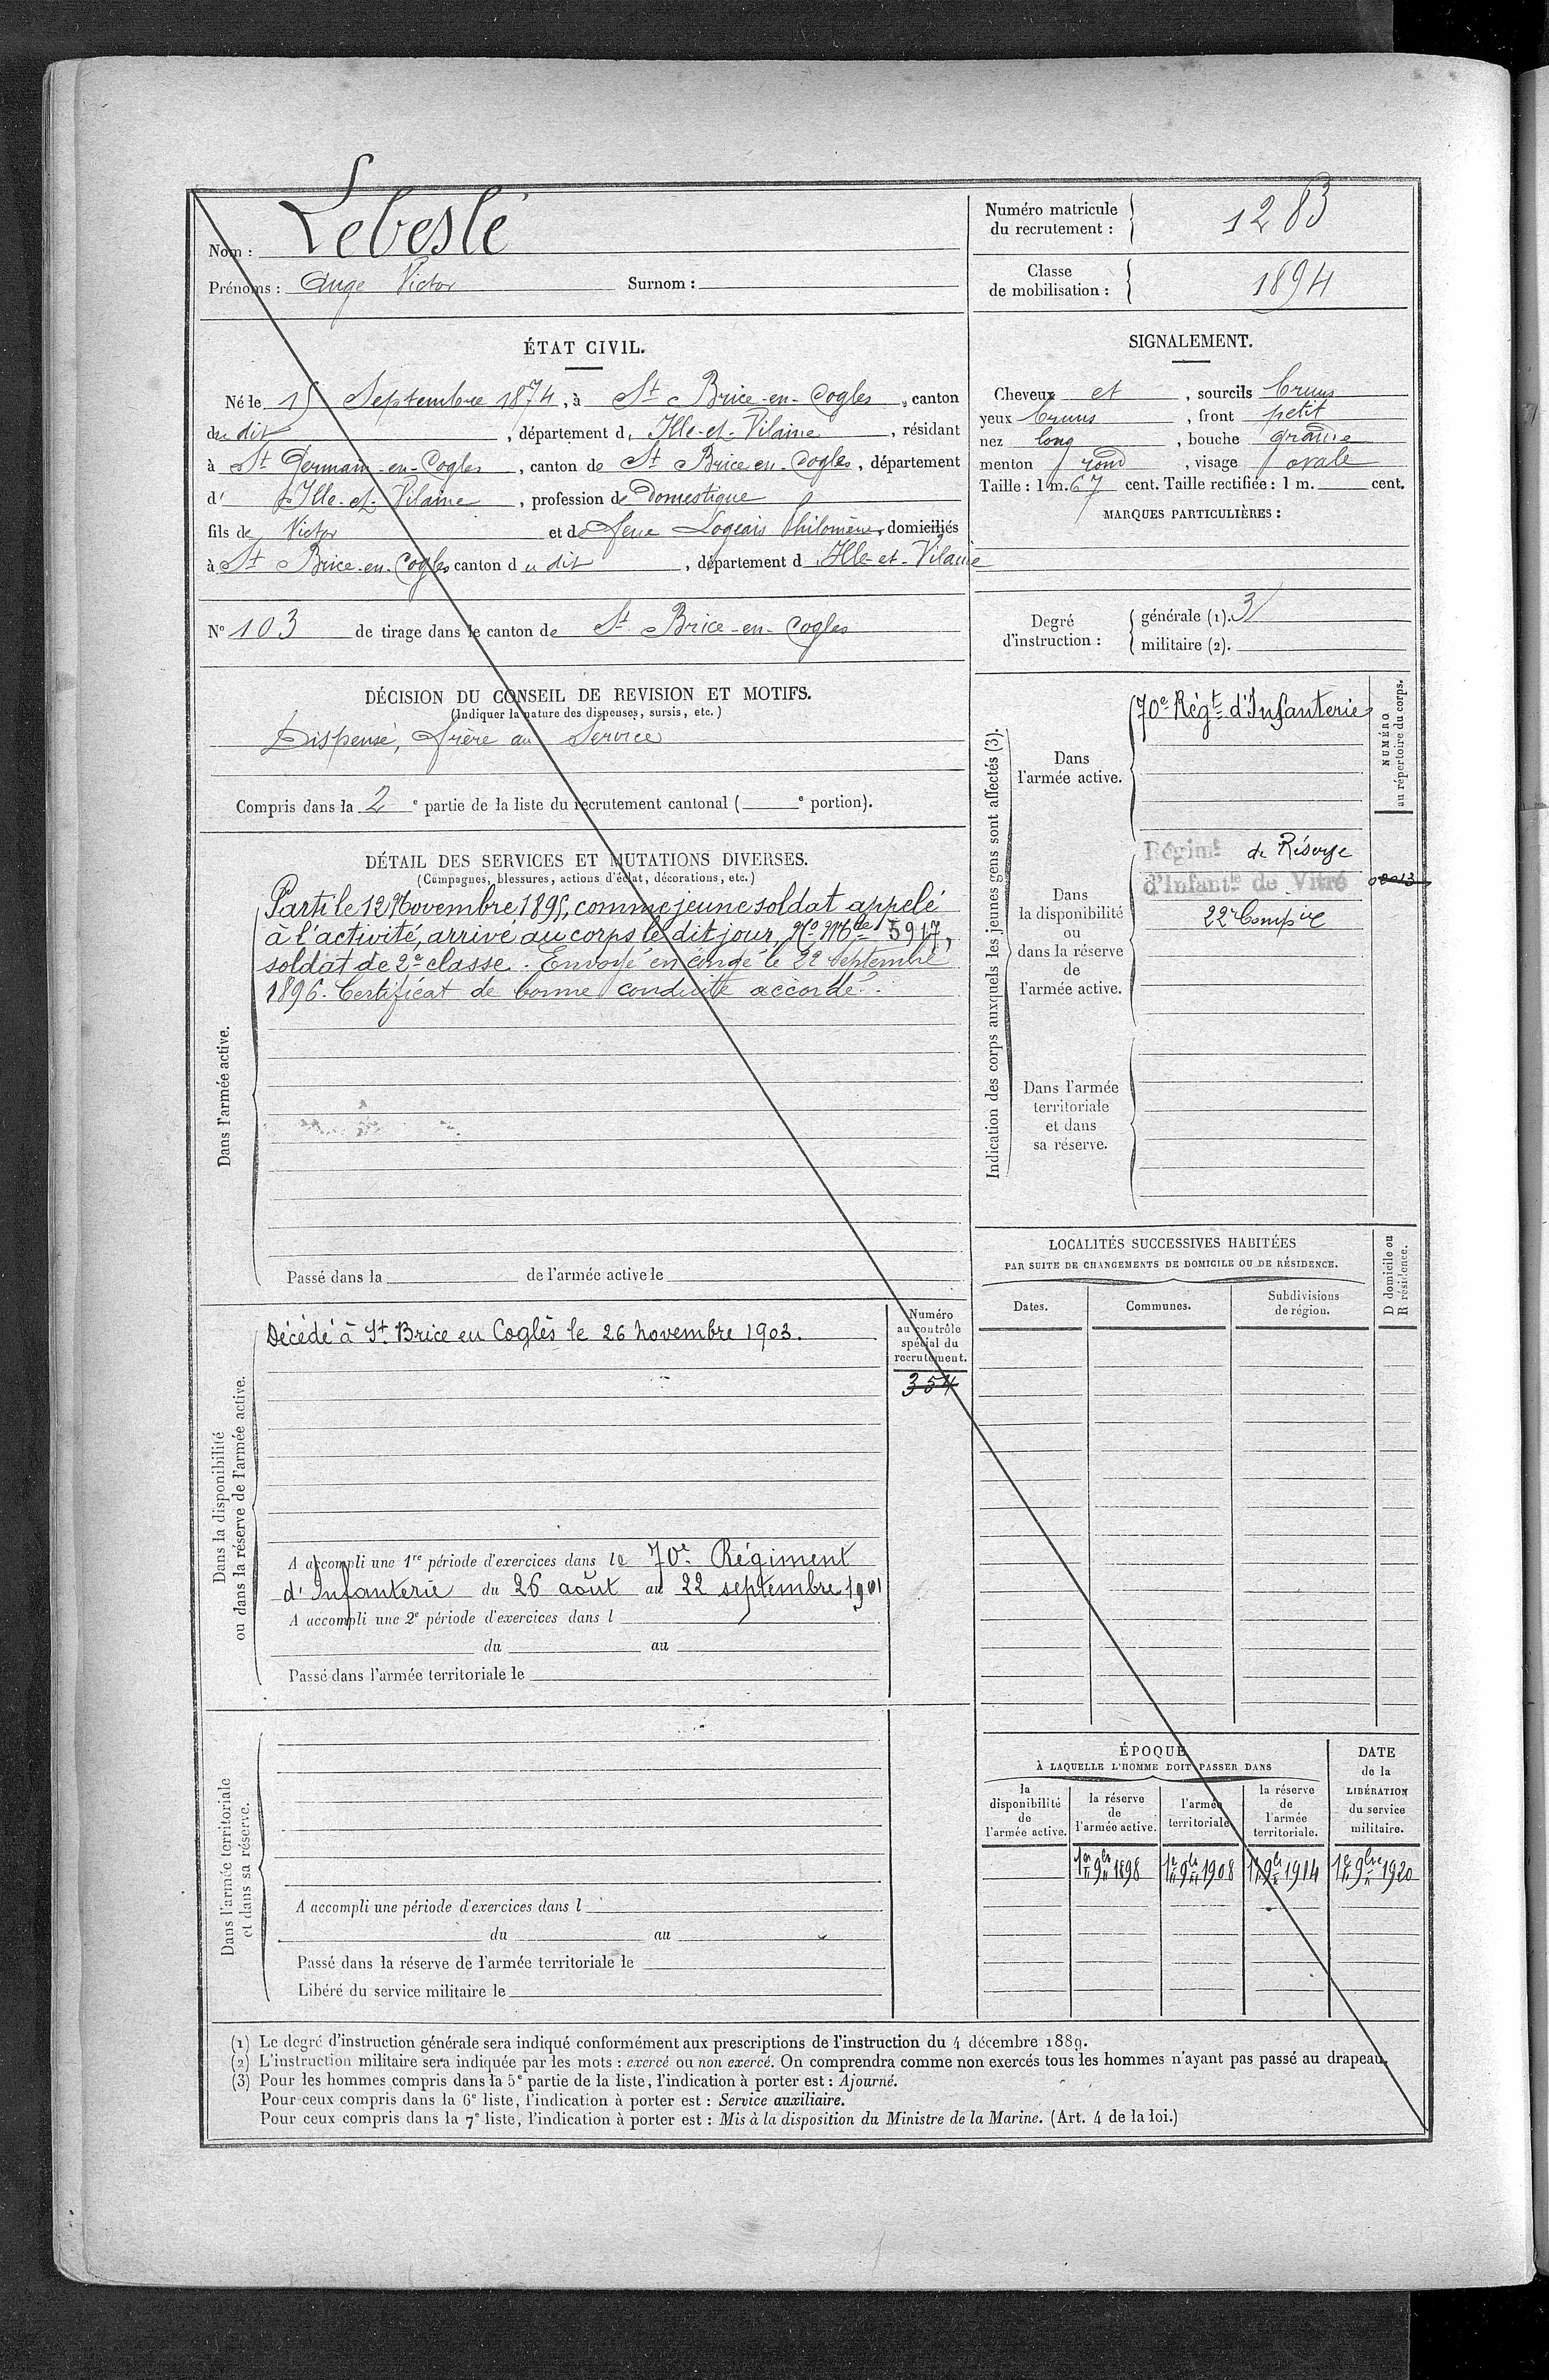 Nom : Lebeslé
Prénoms : Ange Victor Surnom :
Numéro matricule du recrutement : 1283
Classe de mobilisation : 1894
ÉTAT CIVIL.
Né le 15 Septembre 1874, à St Brice-en-Cogles, canton
du dit, département d' Ille-et-Vilaine, résidant
à St Germain-en-Cogles, canton de St Brice en-Cogles, département
d' Ille-et-Vilaine, profession de Domestique
fils de Victor et de feue Logeais Philomène, domiciliés
à St Brice-en-Cogles canton du dit, département d Ille-et-Vilaine
N° 103 de tirage dans le canton de St Brice-en-Cogles
SIGNALEMENT.
Cheveux et, sourcils bruns
yeux bruns, front petit
nez long, bouche grande
menton rond, visage ovale
Taille : 1 m. 67 cent. Taille rectifiée : 1 m. cent.
MARQUES PARTICULIÈRES :
Degré d'instruction :
générale (1). 3
militaire (2).
DÉCISION DU CONSEIL DE REVISION ET MOTIFS.
(Indiquer la nature des dispenses, sursis, etc.)
Dispensé, frère au Service
Compris dans la 2e partie de la liste du recrutement cantonal ( e portion).
DÉTAIL DES SERVICES ET MUTATIONS DIVERSES.
(Campagnes, blessures, actions d'éclat, décorations, etc.)
Dans l'armée active.
Parti le 12 Novembre 1895, comme jeune soldat appelé
à l'activité, arrivé au corps le dit jour, No Mle 5917,
soldat de 2e classe. Envoyé en congé le 22 Septembre
1896. Certificat de bonne conduite accordé.
Passé dans la de l'armée active le
Dans la disponibilité
ou dans la réserve de l'armée active.
Décédé à St Brice en Coglès le 26 novembre 1903.
Numéro
au contrôle
spécial du
recrutement.
354
A accompli une 1re période d'exercices dans le 70e Régiment
d'Infanterie du 26 août au 22 septembre 1901
A accompli une 2e période d'exercices dans l
du au
Passé dans l'armée territoriale le
Dans l'armée territoriale
et dans sa réserve.
A accompli une période d'exercices dans l
du au
Passé dans la réserve de l'armée territoriale le
Libéré du service militaire le
Indication des corps auxquels les jeunes gens sont affectés (3).
NUMÉRO
au répertoire du corps.
Dans
l'armée active.
70e Régt d'Infanterie
Dans
la disponibilité
ou
dans la réserve
de
l'armée active.
Régimt de Réserve
d'Infantie de Vitré
22e Compie
Dans l'armée
territoriale
et dans
sa réserve.
LOCALITÉS SUCCESSIVES HABITÉES
PAR SUITE DE CHANGEMENTS DE DOMICILE OU DE RÉSIDENCE.
D domicile ou
R résidence.
Dates. Communes. Subdivisions de région.
ÉPOQUE
À LAQUELLE L'HOMME DOIT PASSER DANS
la disponibilité de l'armée active.
la réserve de l'armée active.
l'armée territoriale
la réserve de l'armée territoriale.
DATE de la LIBÉRATION du service militaire.
1er 9bre 1898 1er 9bre 1908 1er 9bre 1914 1er 9bre 1920
(1) Le degré d'instruction générale sera indiqué conformément aux prescriptions de l'instruction du 4 décembre 1889.
(2) L'instruction militaire sera indiquée par les mots : exercé ou non exercé. On comprendra comme non exercés tous les hommes n'ayant pas passé au drapeau.
(3) Pour les hommes compris dans la 5e partie de la liste, l'indication à porter est : Ajourné.
Pour ceux compris dans la 6e liste, l'indication à porter est : Service auxiliaire.
Pour ceux compris dans la 7e liste, l'indication à porter est : Mis à la disposition du Ministre de la Marine. (Art. 4 de la loi.)